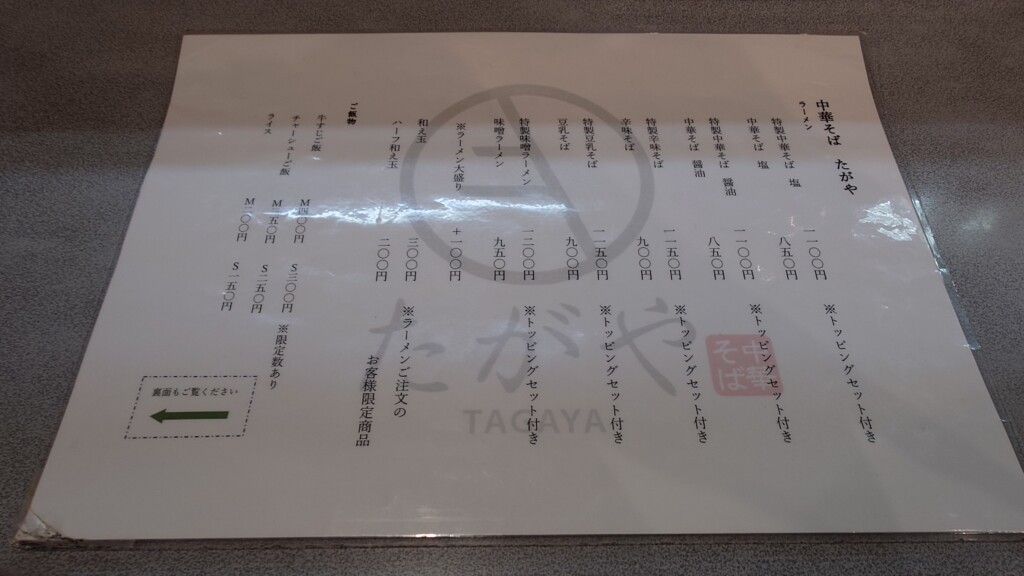 中華そば たがや
ラーメン
特製中華そば 塩 一一〇〇円 ※トッピングセット付き
中華そば 塩 八五〇円
特製中華そば 醤油 一一〇〇円 ※トッピングセット付き
中華そば 醤油 八五〇円
特製辛味そば 一一五〇円 ※トッピングセット付き
辛味そば 九〇〇円
特製豆乳そば 一一五〇円 ※トッピングセット付き
豆乳そば 九〇〇円
特製味噌ラーメン 一二〇〇円 ※トッピングセット付き
味噌ラーメン 九五〇円
※ラーメン大盛り +一〇〇円
和え玉 三〇〇円 ※ラーメンご注文の
ハーフ和え玉 二〇〇円 お客様限定商品
ご飯物
牛すじご飯 M四〇〇円 S三〇〇円 ※限定数あり
チャーシューご飯 M三五〇円 S二五〇円
ライス M二〇〇円 S一五〇円
裏面もご覧ください
たがや
TAGAYA
中華そば